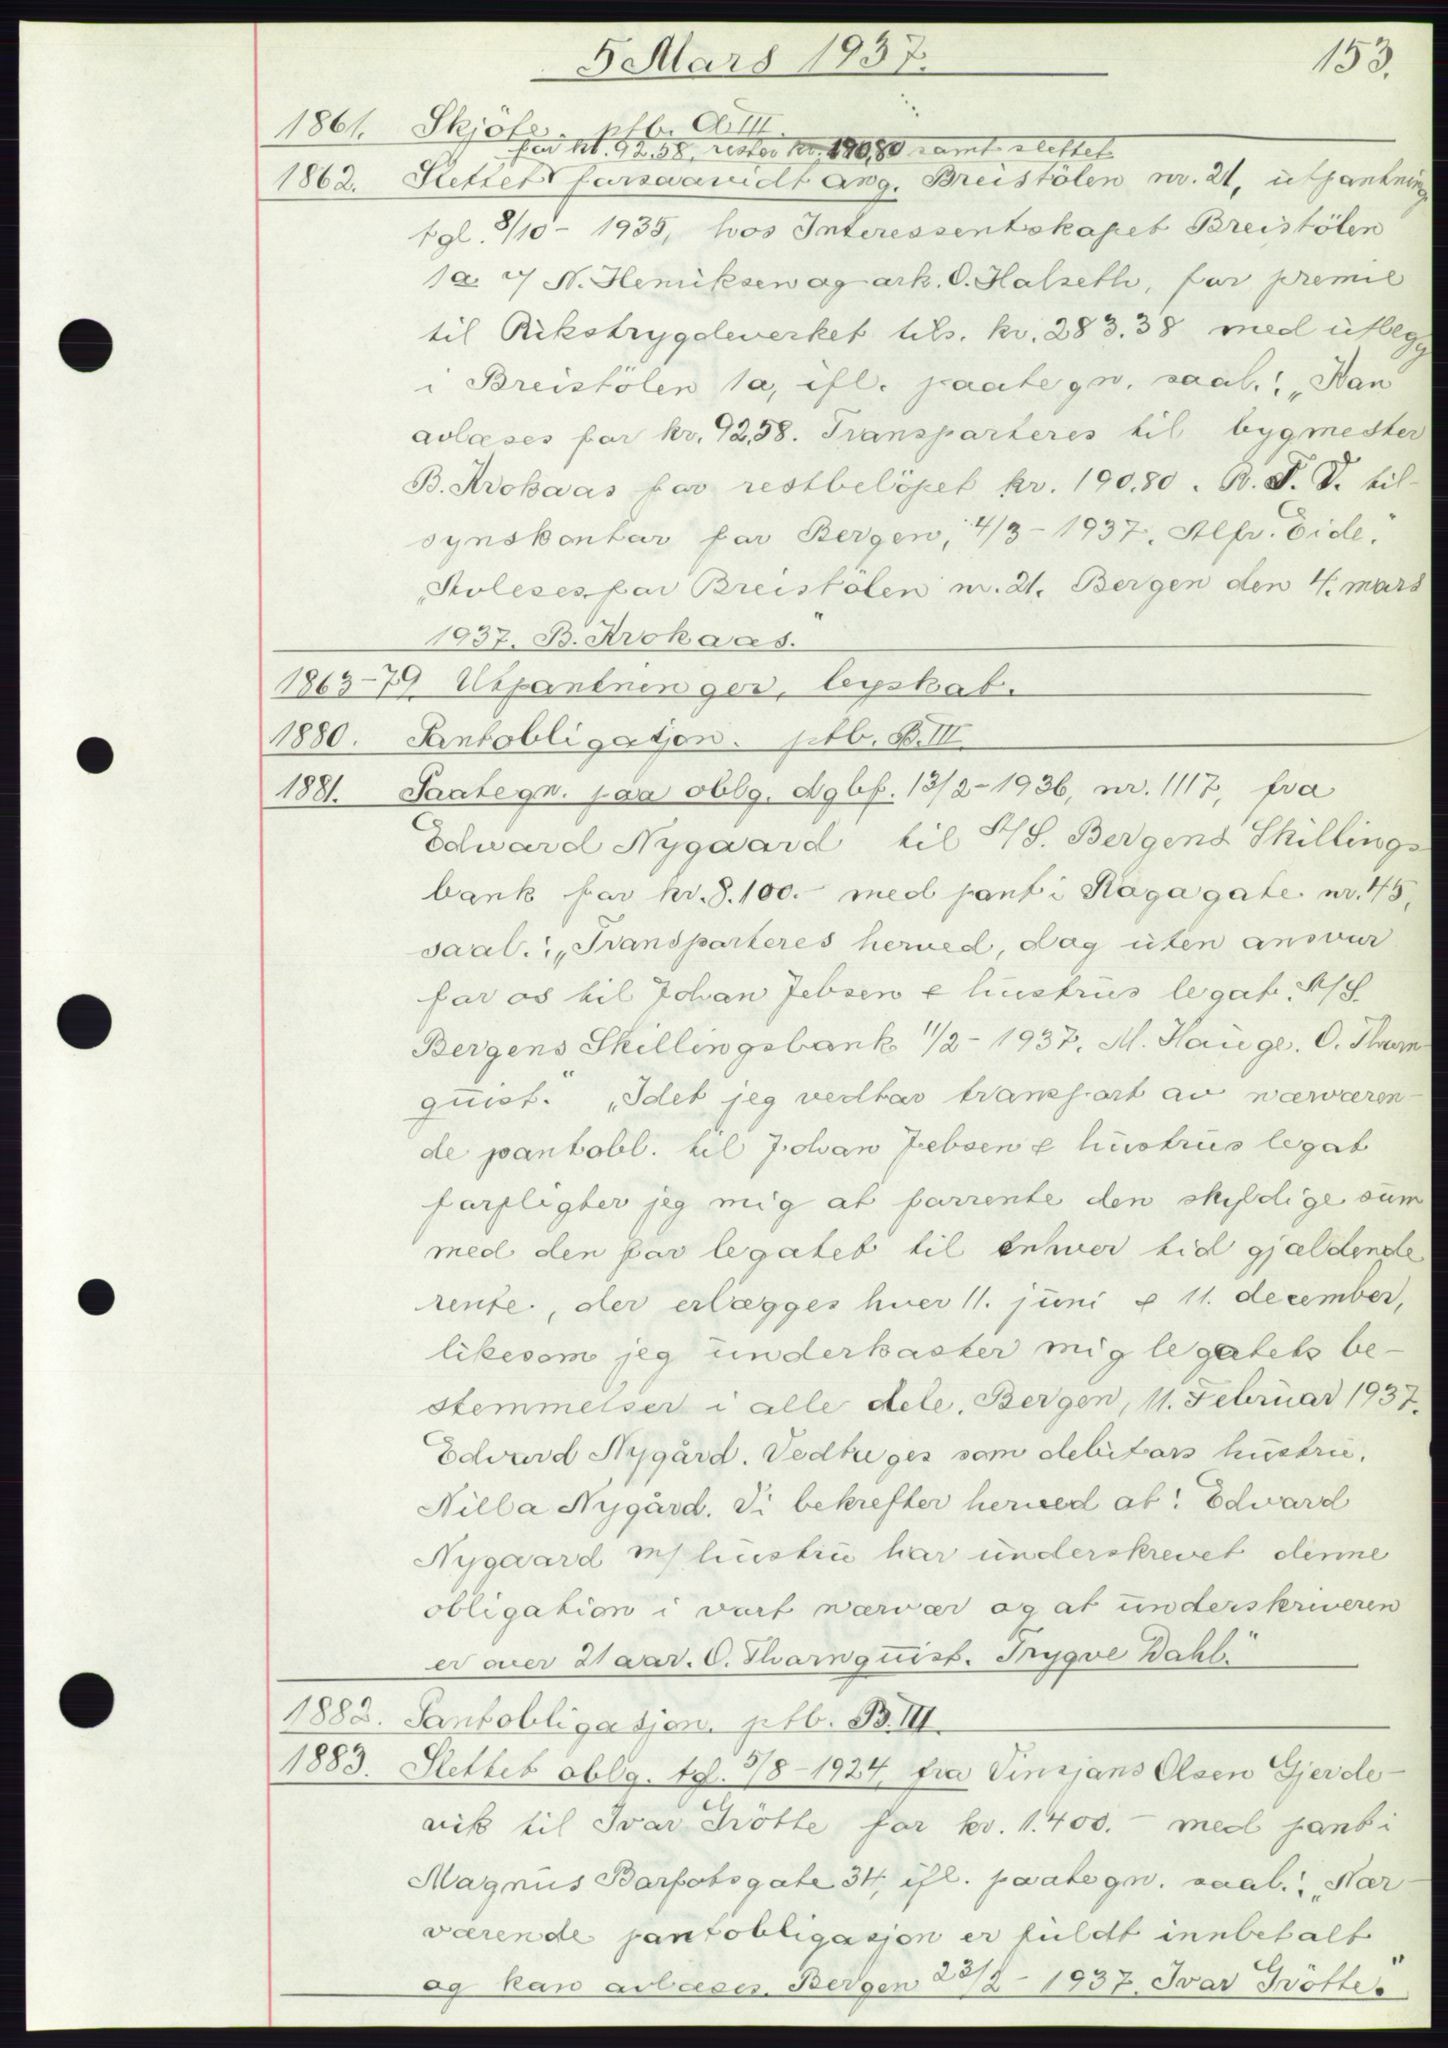 5 Mars 1937.
153.
1861. Skjöte. ptb. A III.
for kr. 92.58, rester kr. 190,80 samt slettet
1862. Slettet forsaavidt ang. Breistölen nr. 21, utpantning
tgl. 8/10 - 1935, hos Interessentskapet Breistölen
1a v/ N. Henriksen og ark. O. Halseth, for premie
til Rikstrygdeverket tils. kr. 283.38 med utlegg
i Breistölen 1a, ifl. paategn. saal.: „Kan
avlæses for kr. 92,58. Transporteres til bygmester
B. Krokaas for restbelöpet kr. 190,80. R. T. V. til-
synskontor for Bergen, 4/3 - 1937. Alfr. Eide."
„Avleses for Breistölen nr. 21. Bergen den 4. mars
1937. B. Krokaas."
1863-79 Utpantninger, legskab.
1880. Pantobligasjon. ptb. B. III.
1881. Paategn. paa oblg. dgbf. 13/2 - 1936, nr. 1117, fra
Edward Nygaard til A/S. Bergens Skillings-
bank for kr. 8.100.- med pant i Kaga gate nr. 45,
saal.: „Transporteres herved, dog uten ansvar
for os til Johan Jebsen & hustrus legat. A/S.
Bergens Skillingsbank 11/2 - 1937. M. Hauge. O. Thorn-
quist." „Idet jeg vedtar transport av nærværen-
de pantobl. til Johan Jebsen & hustrus legat
forpligter jeg mig at forrente den skyldige sum
med den for legatet til enhver tid gjældende
rente, der erlægges hver 11. juni & 11. december,
likesom jeg underkaster mig legatets be-
stemmelser i alle dele. Bergen, 11. Februar 1937.
Edvard Nygård. Vedtages som debitors hustru.
Nilla Nygård. Vi bekrefter herved at: Edward
Nygaard m/ hustru har underskrevet denne
obligation i vort nærvær og at underskriveren
er over 21 aar. O. Thornquist. Trygve Dahl."
1882. Pantobligasjon. ptb. B. III.
1883. Slettet oblg. tgl. 5/8 - 1924, fra Vinsjans Olsen Gjerde-
vik til Ivar Tròtte for kr. 1.400.- med pant i
Magnus Barfotsgate 34, ifl. paategn. saal.: „Nær-
værende pantobligasjon er fuldt innbetalt
og kan avlæses. Bergen 23/2 - 1937. Ivar Tròtte."